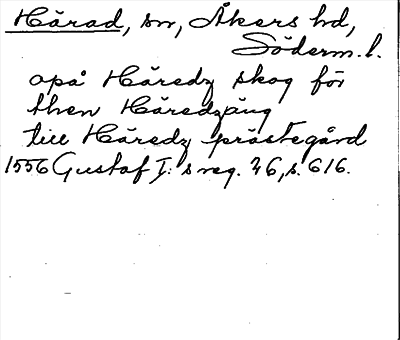 Härad, sn, Åkers hd,
Söderm. l.
opå Häredz skog för
then Häredzäng
till Häredz prästegård
1556 Gustaf I:s reg. 26, s. 616.